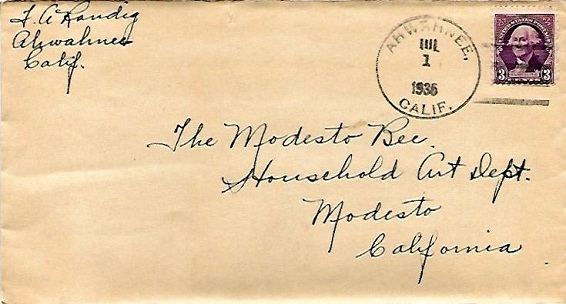 F. A. Landig
Ahwahnee
Calif.
AHWAHNEE,
JUL
1
1936
CALIF.
3 3
The Modesto Bee.
Household Art Dept.
Modesto
California